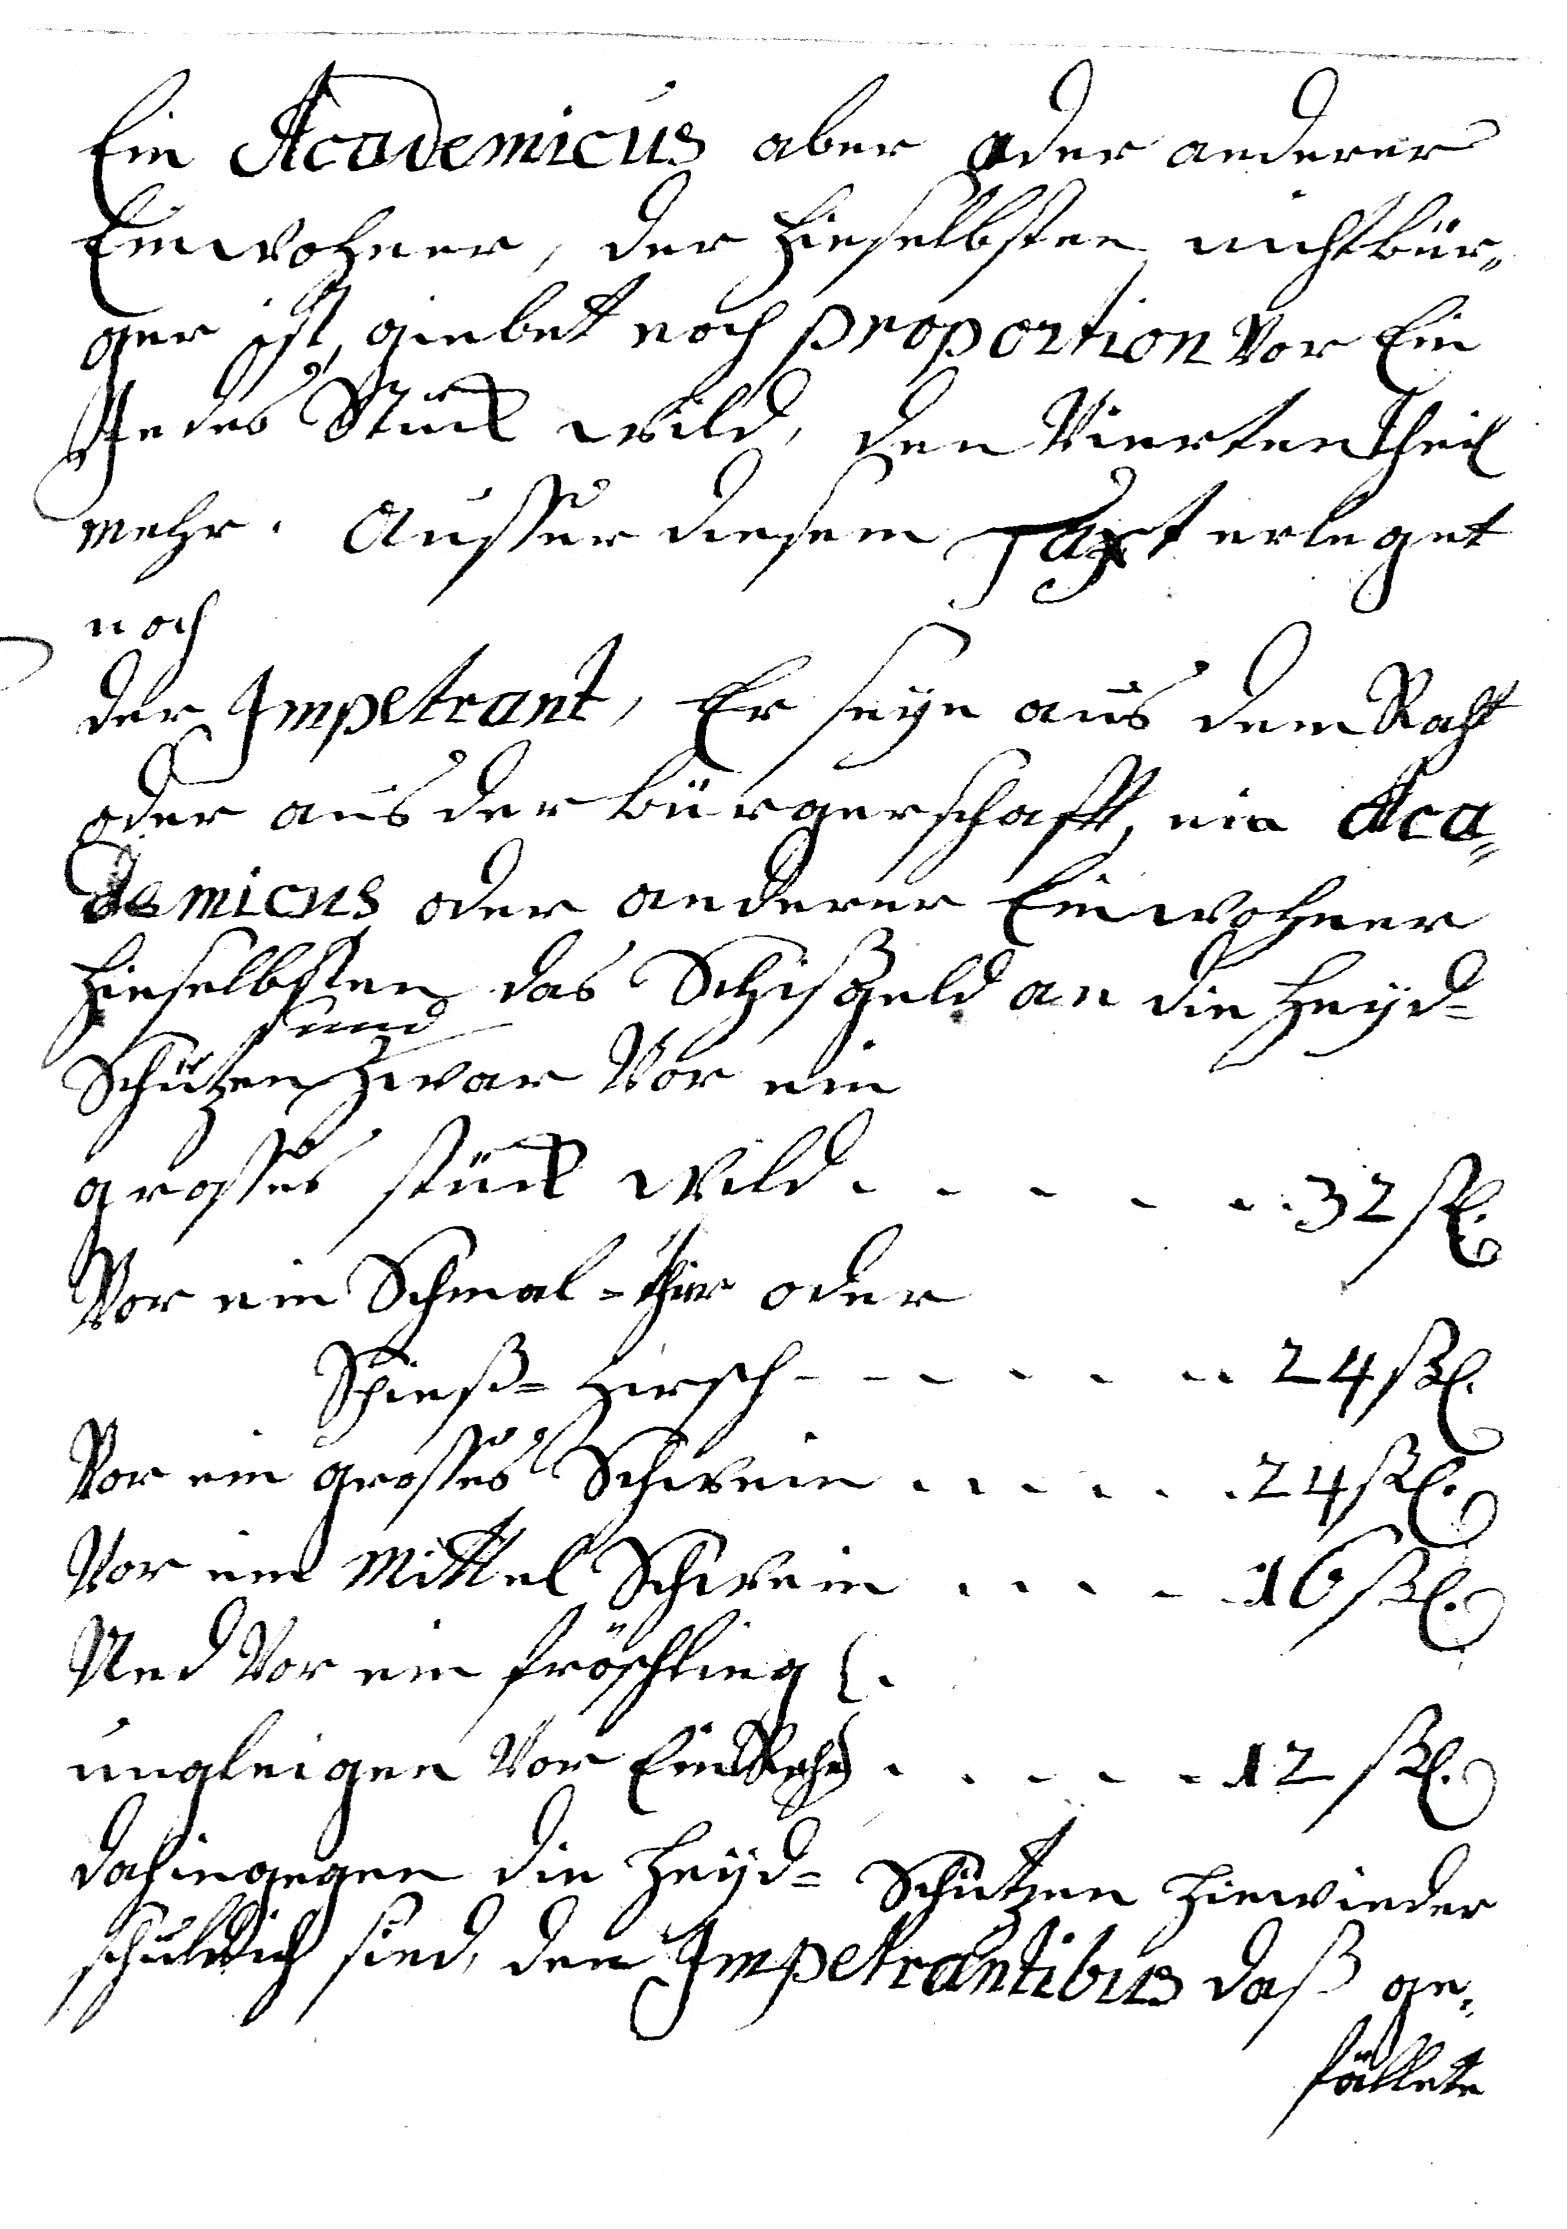 Ein Academicus aber oder anderer
Einwohner, der hieselbsten nicht bür„
ger ist, giebet noch proportion Vor Ein
Jedes Stück Wild, den Vierten Theil
mehr. Ausser diesem Taxt erleget
noch
der Impetrant, Er seye aus dem Raht
oder aus der bürgerschafft, ein Aca„
demicus oder anderer Einwohner
hieselbsten das Schißgeld an die Heyd=
und
Schützen zwar Vor ein
grosses stück Wild . . . . . . 32 ßl.
Vor ein Schmal=thier oder
Spieß=Hirsch - - - . . . . 24 ßl.
Vor ein grosses Schwein . . . . . . 24 ßl.
Vor ein Mittel Schwein . . . . . 16 ßl.
Und Vor ein fröschling .
ungleigen Vor Ein Rehe . . . . . 12 ßl.
dahingegen die Heyd=Schützen hinwieder
schuldich sind, den Impetrantibus daß ge„
fällete